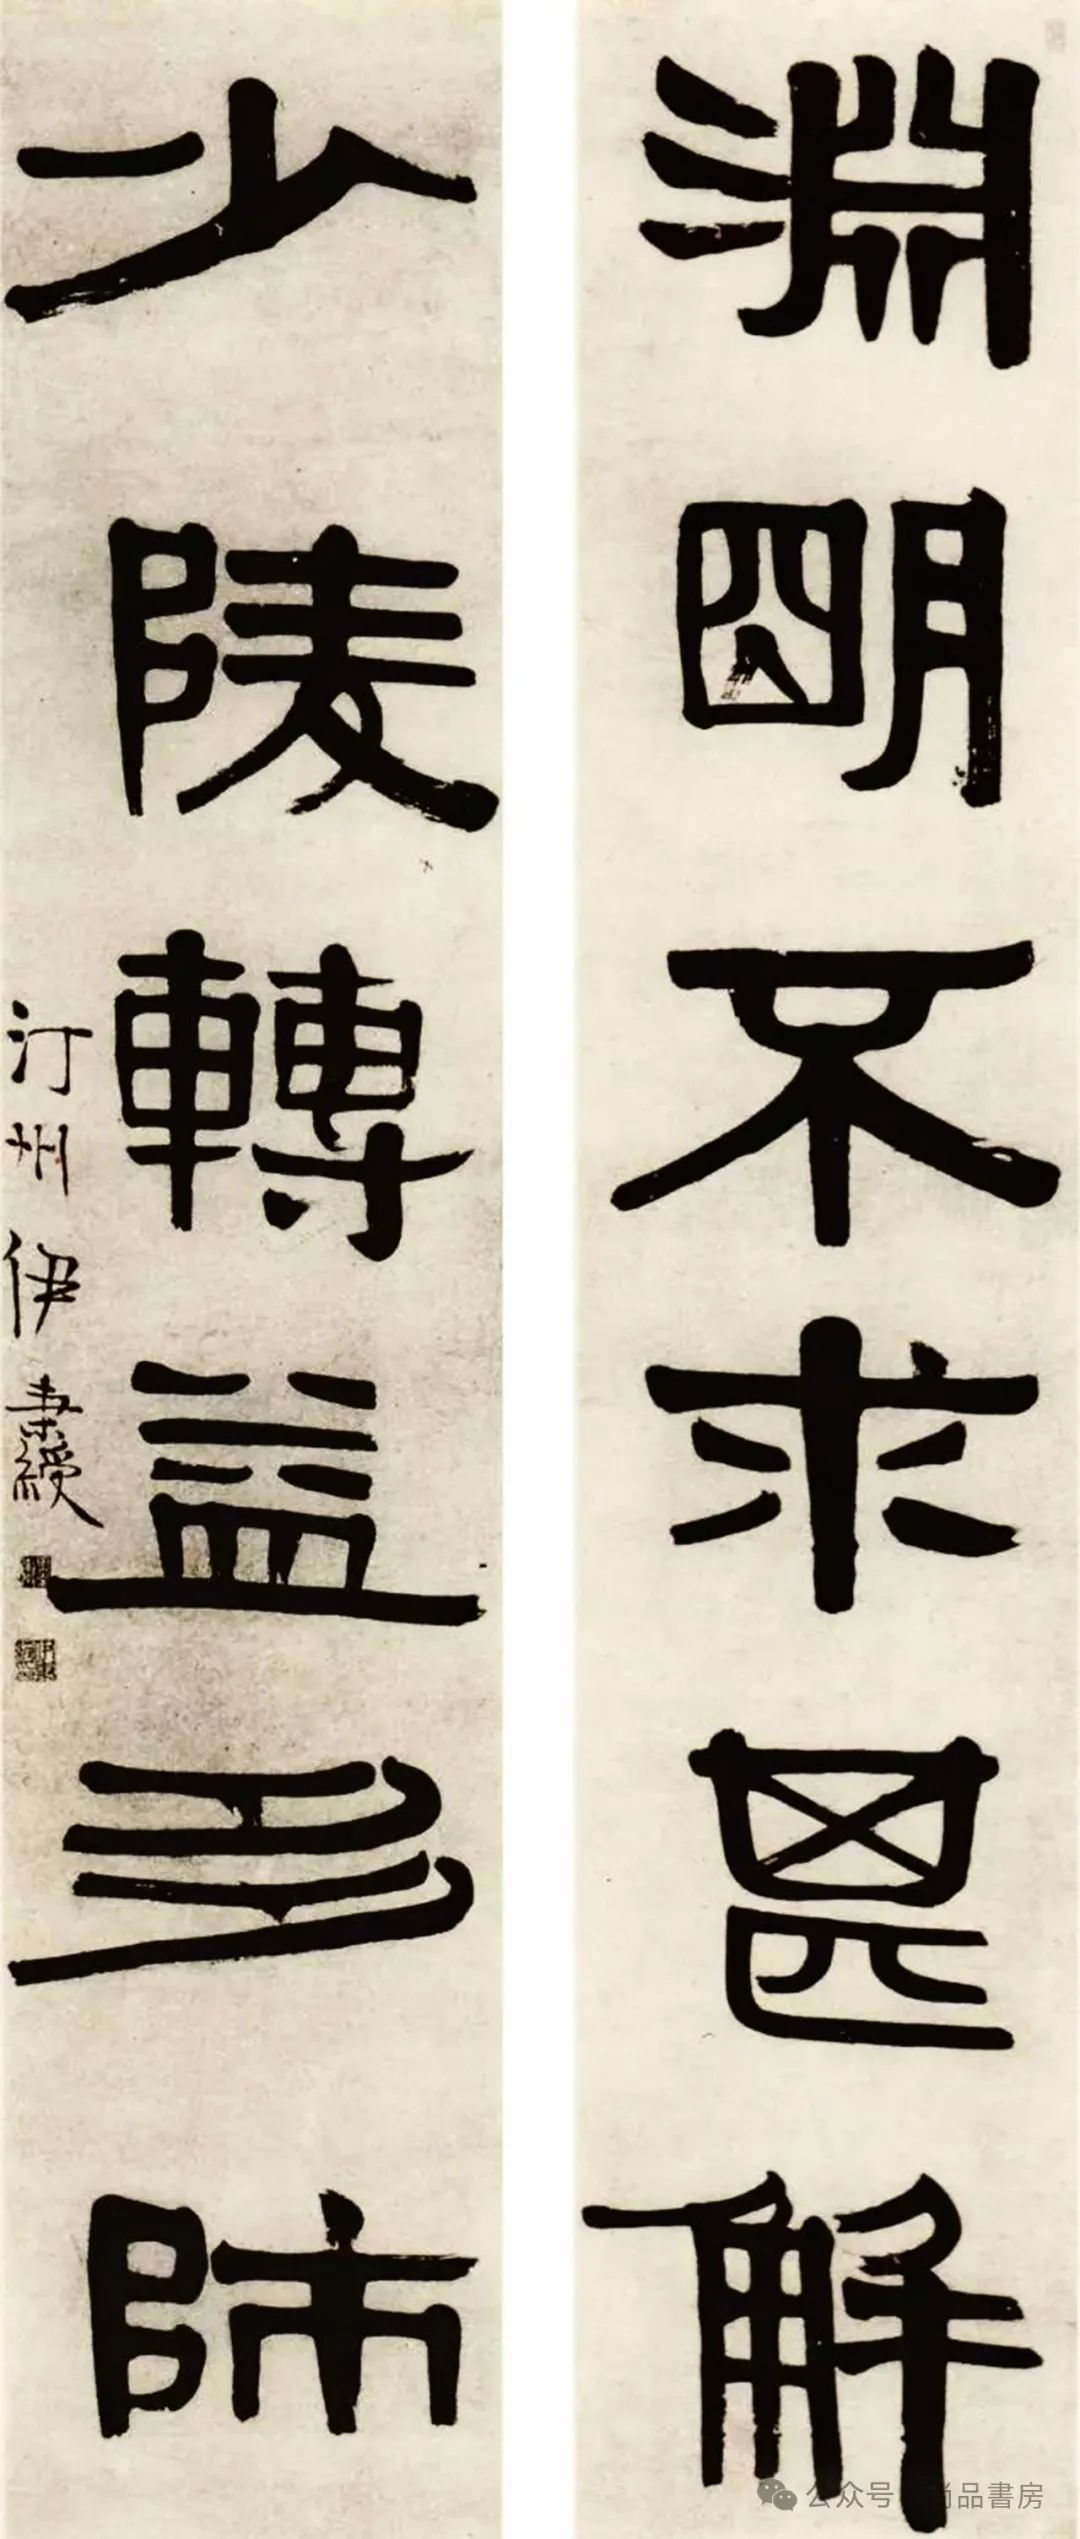 淵明不求甚解
少陵轉益多師
汀州伊秉綬
公众号 尚品書房